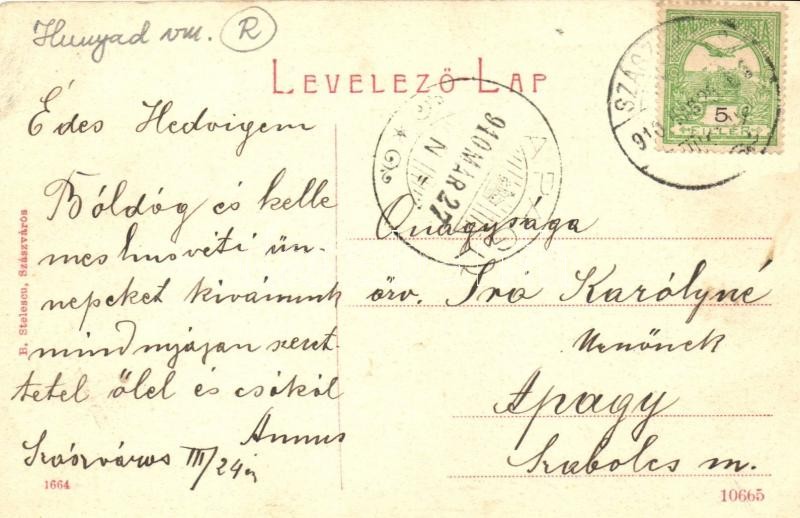 Hunyad vm. R
LEVELEZŐ LAP
MAGYAR POSTA
5
FILLÉR
SZÁSZ
APAGY
910 MAR 27
Édes Hedvigem
Bóldóg és kelle
mes husvéti ün-
nepeket kivánunk
mindnyájan szeret-
tetel ölel és csókol
Annus
Szászváros III/24én
Őnagysága
özv. Író Károlyné
Urnőnek
Apagy
Szabolcs m.
B. Stelescu, Szászváros
1664
10665